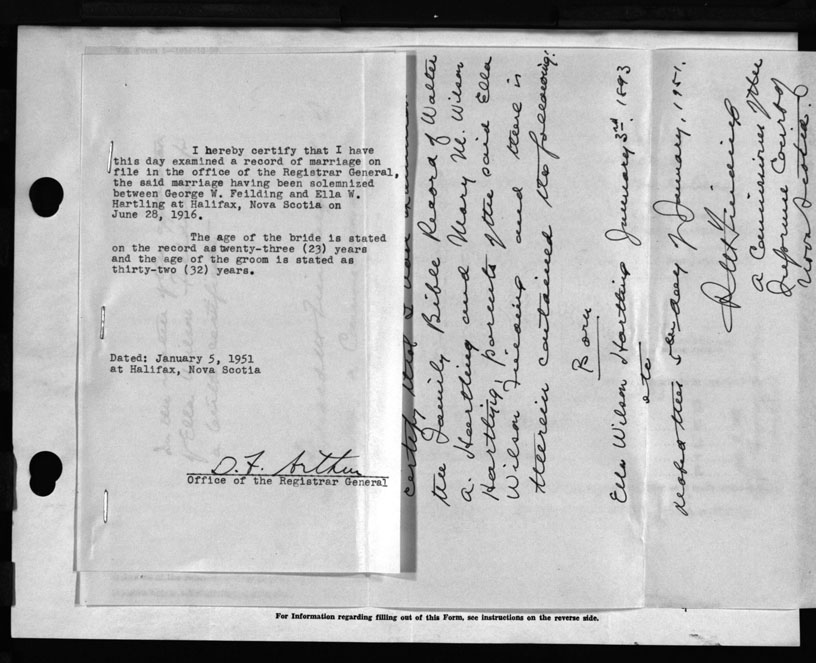 I hereby certify that I have
this day examined a record of marriage on
file in the office of the Registrar General,
the said marriage having been solemnized
between George W. Feilding and Ella W.
Hartling at Halifax, Nova Scotia on
June 28, 1916.
The age of the bride is stated
on the record as twenty-three (23) years
and the age of the groom is stated as
thirty-two (32) years.
Dated: January 5, 1951
at Halifax, Nova Scotia
D. F. Arthur
Office of the Registrar General
certify that I
the Family Bible Record of Walter
A. Hartling and Mary M. Wilson
Hartling, parents of the said Ella
Wilson and there is
therein contained the following:
Born
Ella Wilson Hartling January 3rd 1893
etc
this 5th day of January, 1951.
a Commissioner of the
Supreme Court of
Nova Scotia.
For Information regarding filling out of this Form, see instructions on the reverse side.